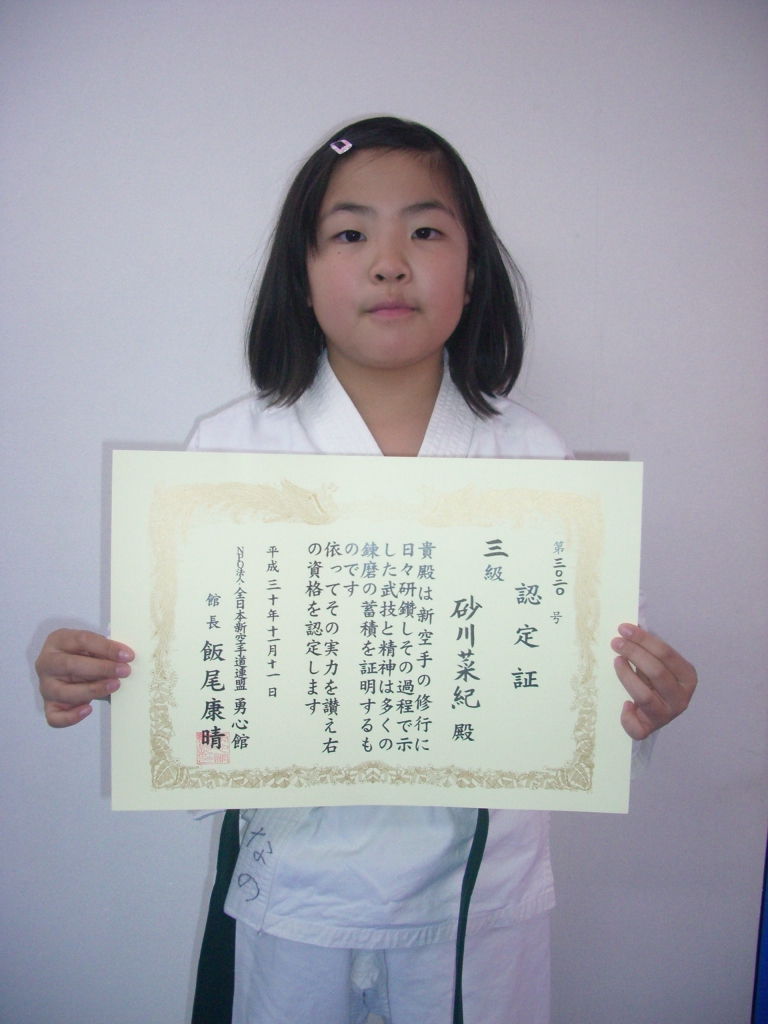 第三〇二〇号
認定証
三級
砂川菜紀殿
貴殿は新空手の修行に
日々研鑽しその過程で示
した武技と精神は多くの
錬磨の蓄積を証明するも
のです
依ってその実力を讃え右
の資格を認定します
平成三十年十一月十一日
NPO法人全日本新空手道連盟勇心館
館長飯尾康晴
なの